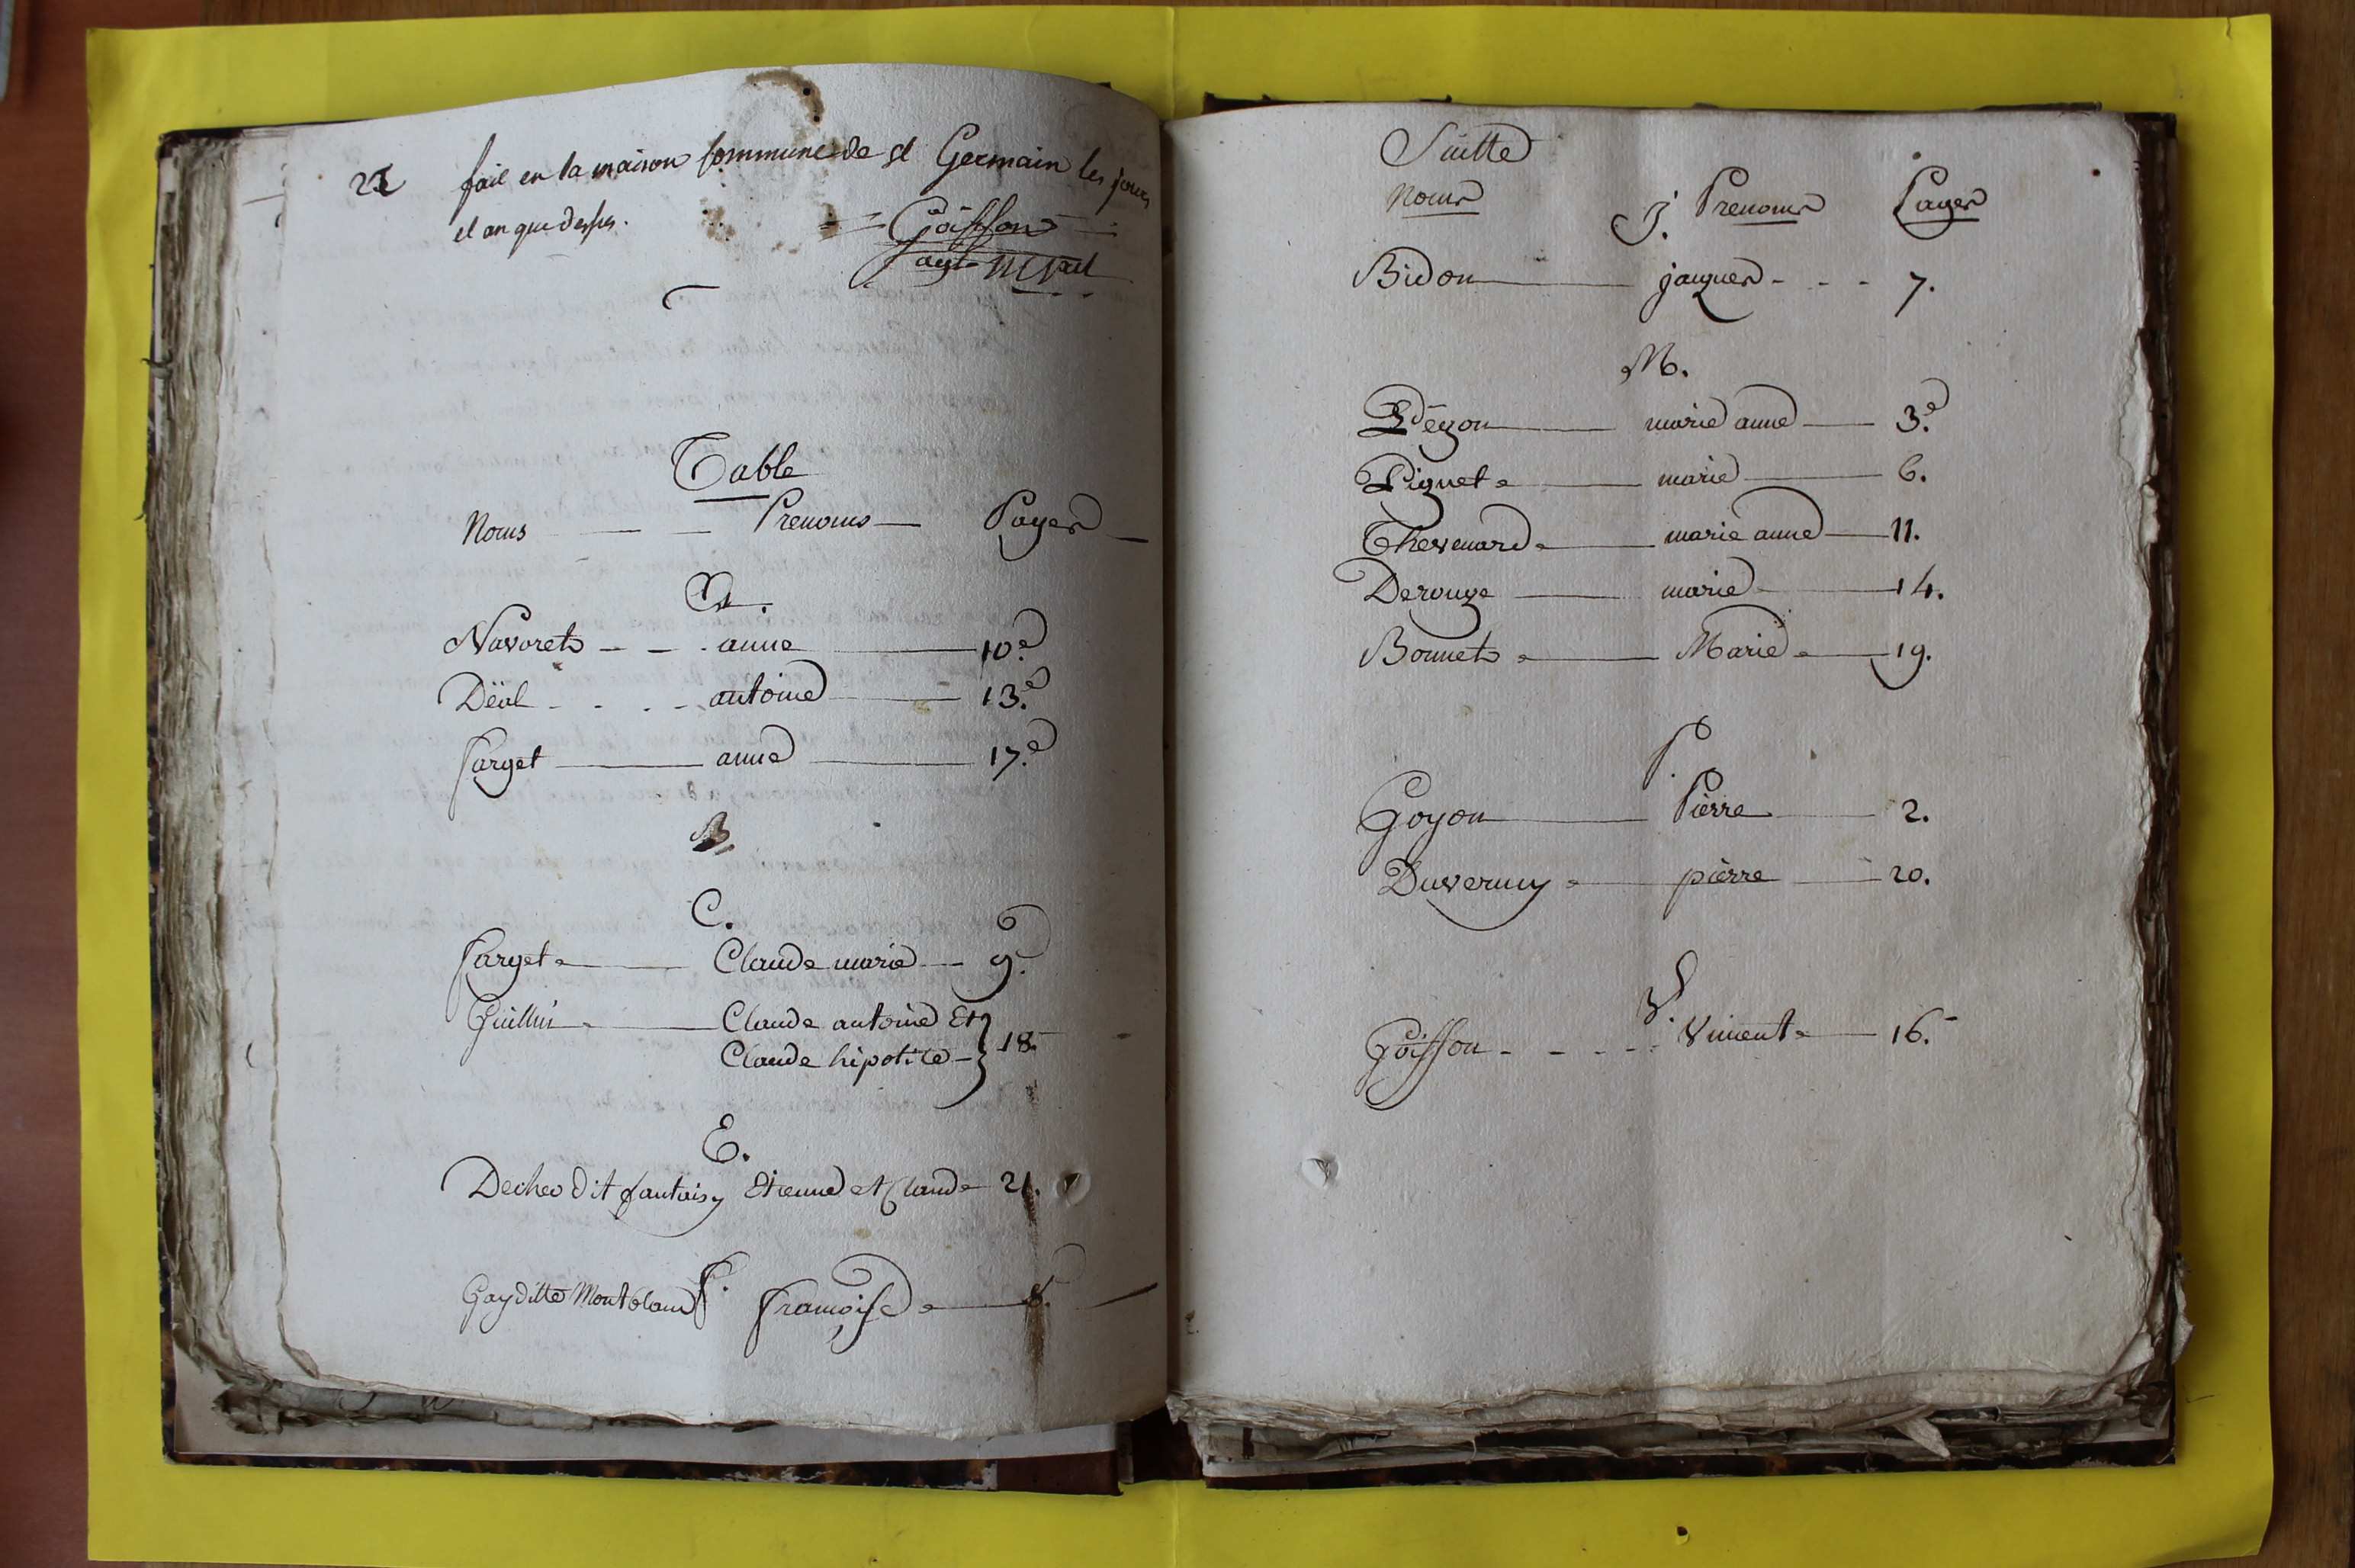 22 fait en la maison Commune de st Germain les jours
et an que dessus.
Goiffon
agt mpal
Table
Noms Prenoms Pages
A.
Navoret anne 10.e
Déal antoine 13.e
Farget anne 17.e
B
C.
Farget Claude marie 9.e
Guillin Claude antoine Et
Claude hipolite 18.
E.
Decheo dit fantaisy Etienne et Claude 21.
F.
Gay ditte Montblanc françoise 8.
Suitte
Noms Prenoms Pages
J.
Bidon jacques 7.
M.
marie anne 3.e
Piquet marie 6.
Thevenard marie anne 11.
Derouge marie 14.
Bonnet Marie 19.
P.
Goyon Pierre 2.
Duverney pierre 20.
V.
Goiffon Vincent 16.